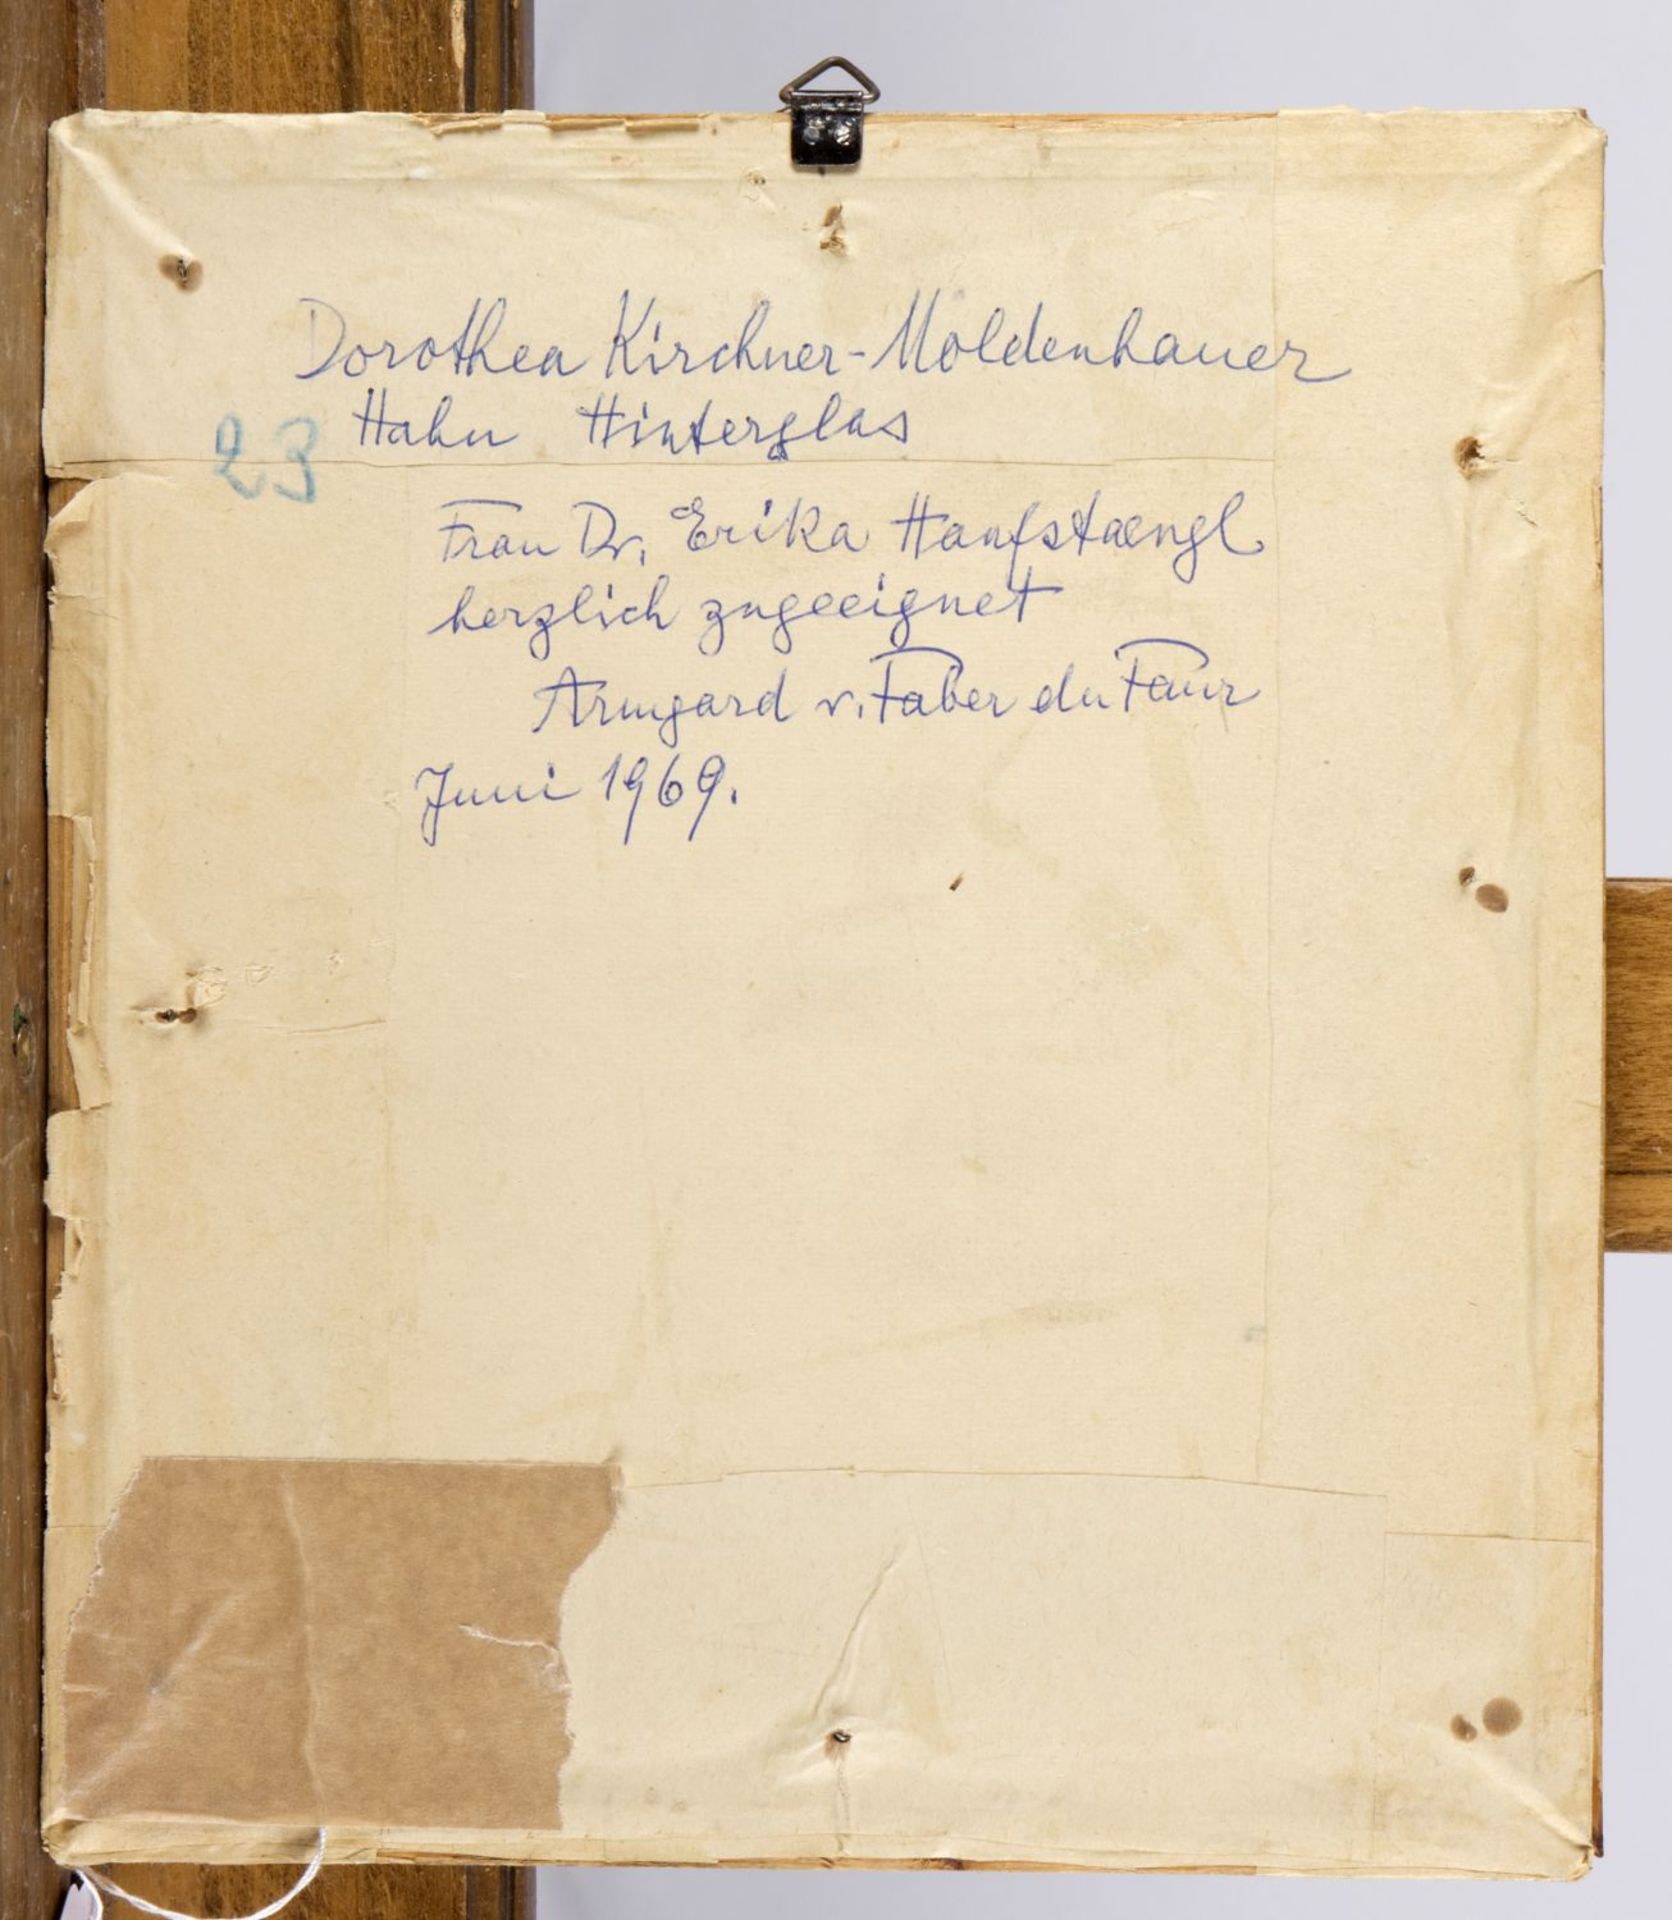 Dorothea Kirchner-Moldenhauer
23 Hahn Hinterglas
Frau Dr. Erika Hanfstaengl
herzlich zugeeignet
Armgard v. Faber du Faur
Juni 1969.